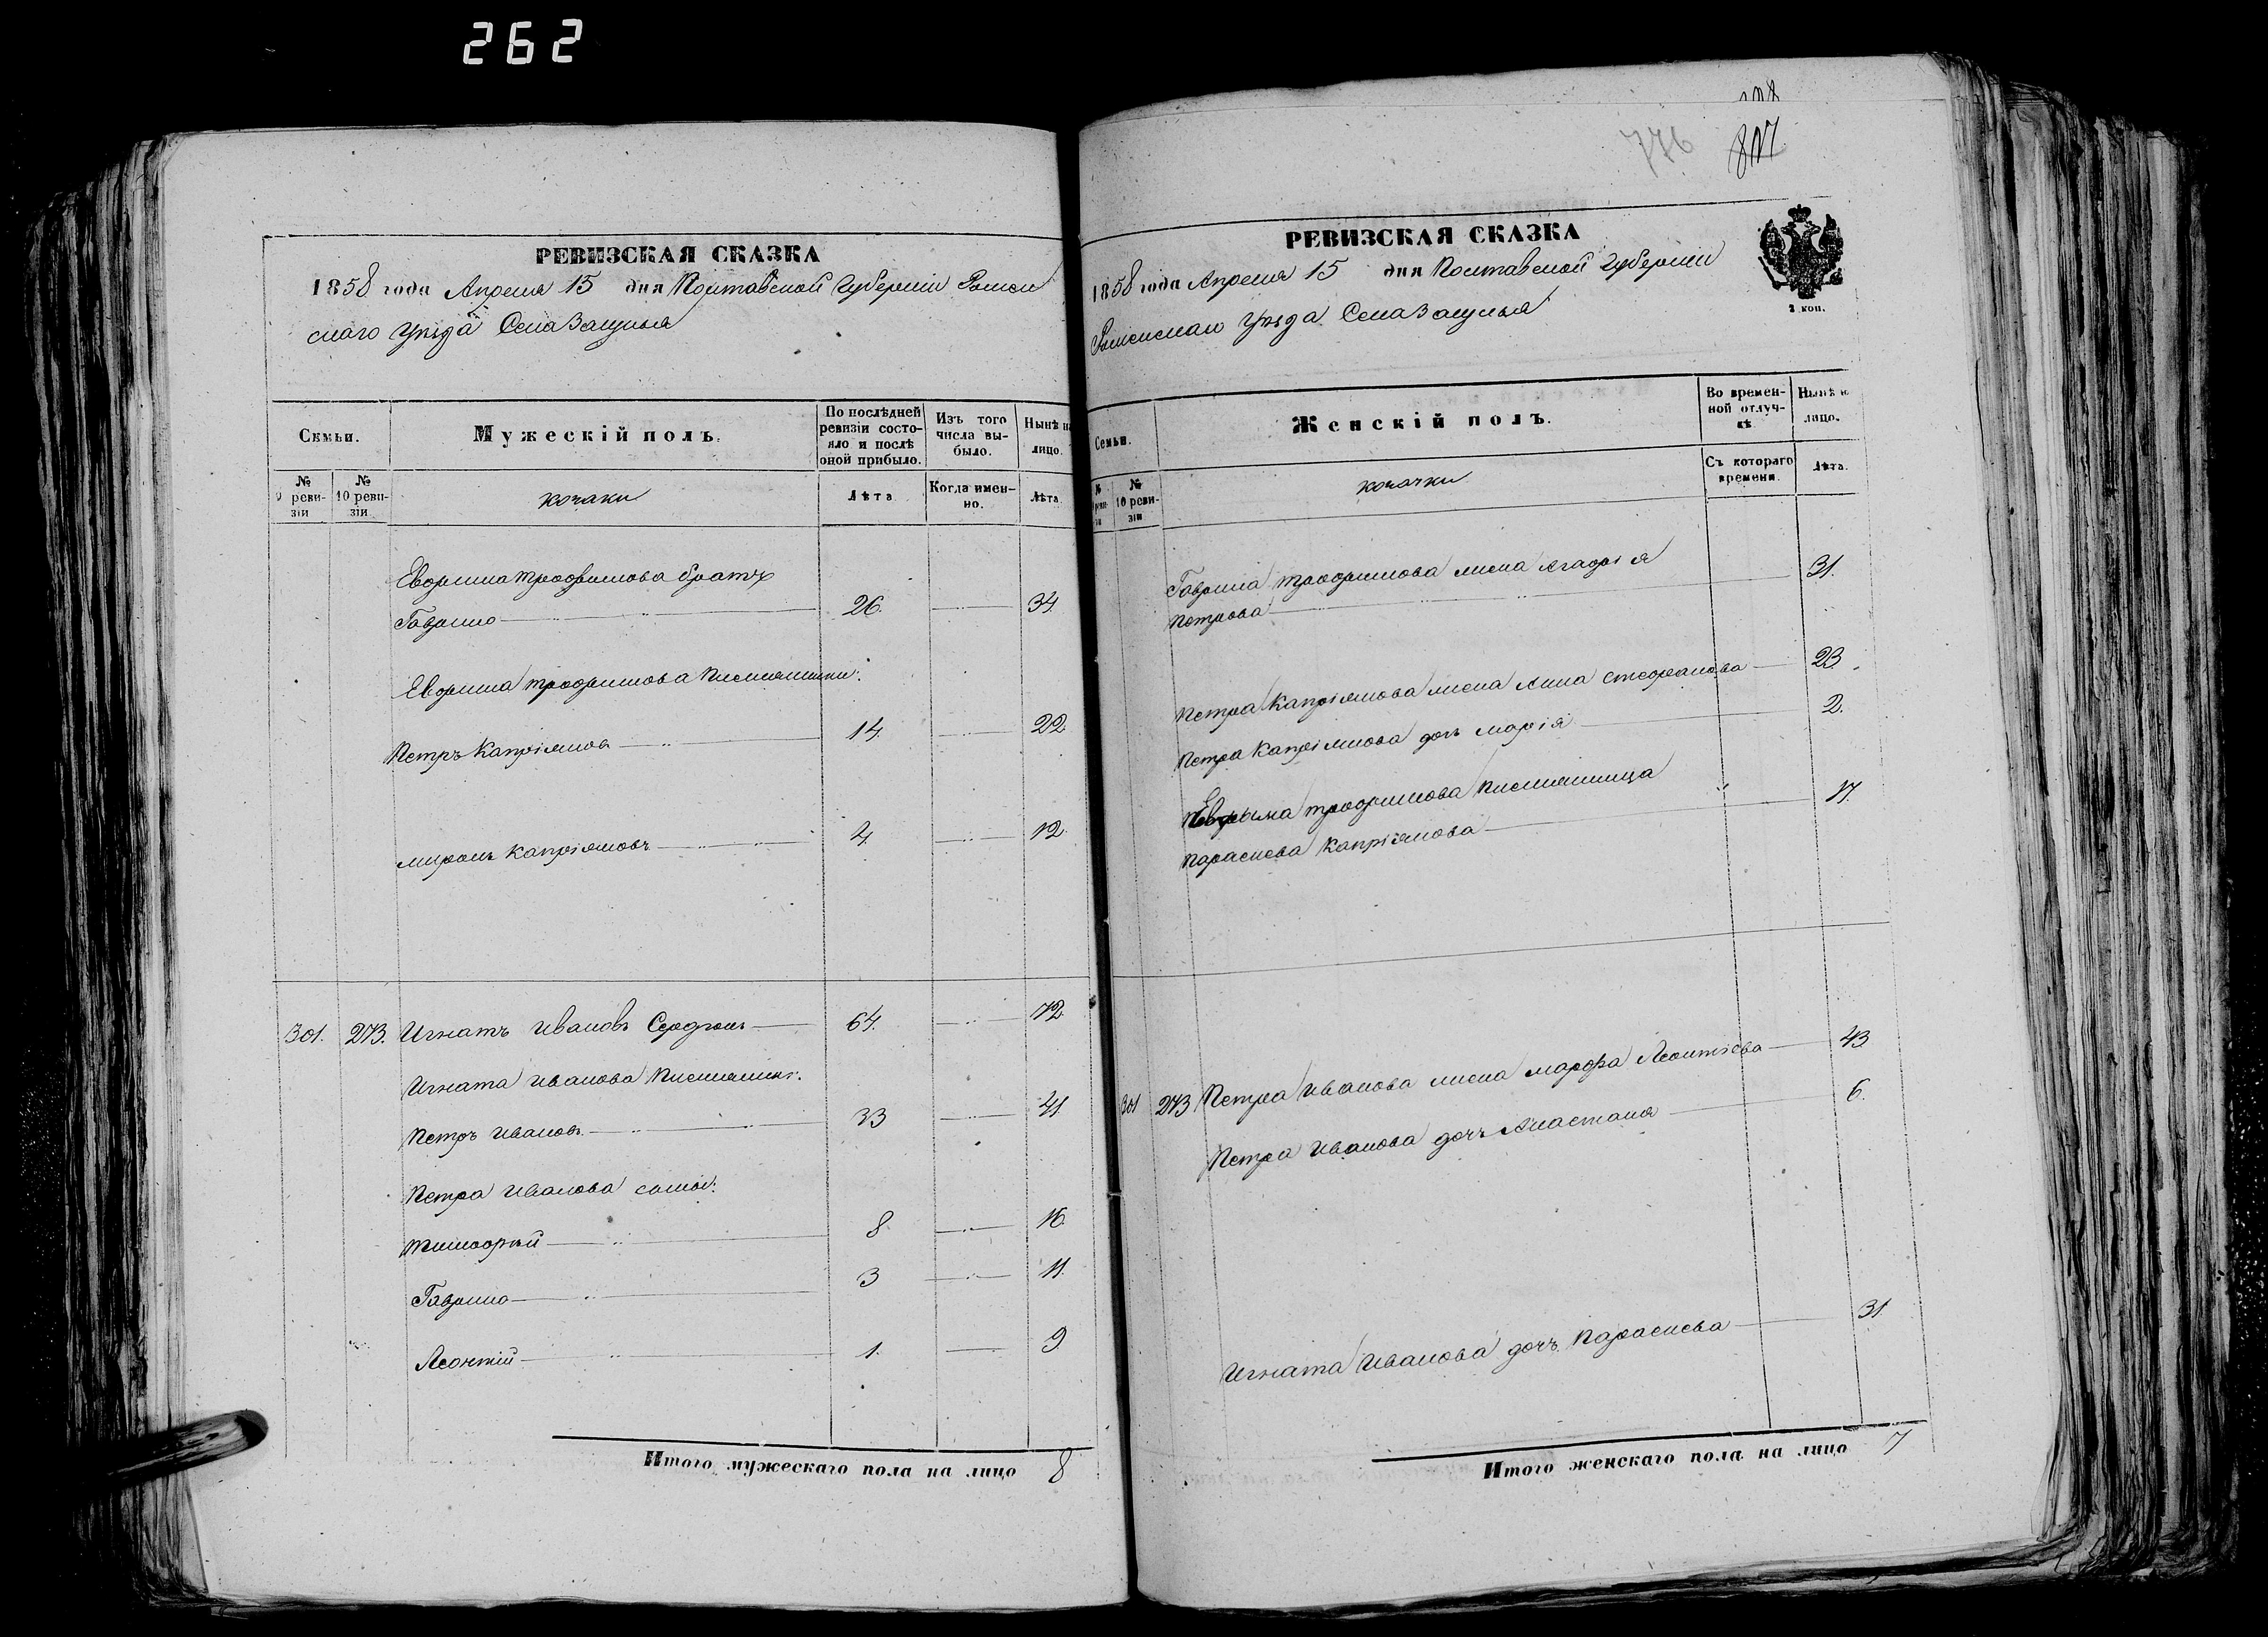 262
РЕВИЗСКАЯ СКАЗКА
1858 года Апреля 15 дня Полтавской Губерніи Ромен
скаго Уѣзда Села Засулья
Семьи.
Мужескій полъ.
По послѣдней ревизіи состояло и послѣ оной прибыло.
Изъ того числа выбыло.
Нынѣ на лицо.
№ 9 ревизіи
№ 10 ревизіи
козаки
Лѣта
Когда именно.
Лѣта
Евфима Трофимова братъ
Гаврило 26. 34.
Евфима Трофимова племянники:
Петръ Капріяновъ 14. 22
Миронъ Капріяновъ 4. 12
301. 273. Игнатъ Ивановъ 64. 72.
Игната Иванова племянникъ:
Петръ Ивановъ 33 41
Петра Иванова сыны:
Тимофѣй 8 16.
Гаврило 3 11.
Леонтій 1. 9
Итого мужескаго пола на лицо 8
776
807
РЕВИЗСКАЯ СКАЗКА
1858 года Апреля 15 дня Полтавской Губерніи
Роменскаго Уѣзда Села Засулья
2 коп.
Семьи.
Женскій полъ.
Во временной отлучкѣ
Нынѣ на лицо.
№ 9 ревизіи
№ 10 ревизіи
козачки
Съ котораго времени.
Лѣта.
Гаврила Трофимова жена Агафія
Петрова 31.
Петра Капріянова жена Анна Стефанова 23
Петра Капріянова дочь Марія 2.
Евфима Трофимова племянница
Параскева Капріянова 17.
301 273 Петра Иванова жена Марфа Леонтіева 43
Петра Иванова дочь Анастасія 6.
Игната Иванова дочь Параскева 31
Итого женскаго пола на лицо 7